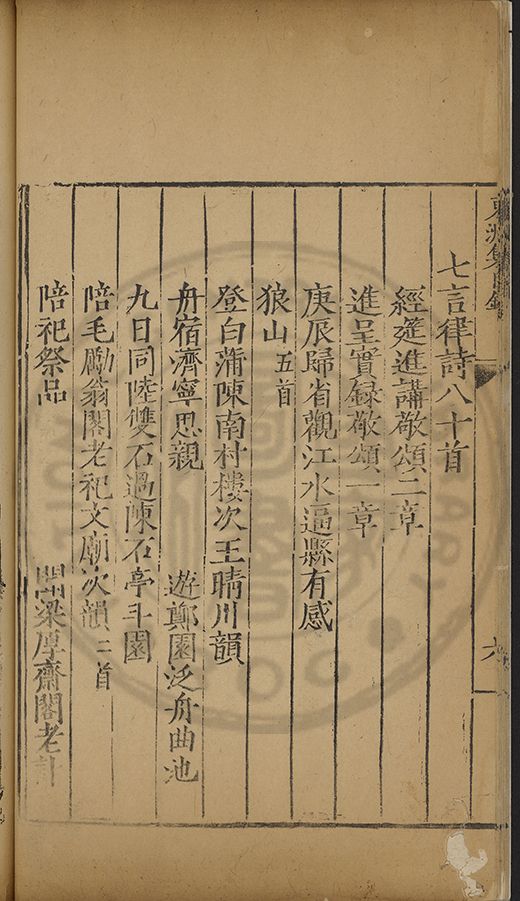 東洲集目錄
六
七言律詩八十首
經筵進講敬頌二章
進呈實録敬頌一章
庚辰歸省觀江水逼縣有感
狼山五首
登白蒲陳南村樓次王晴川韻
舟宿濟寧思親 遊鄭園泛舟曲池
九日同陸雙石過陳石亭斗園
陪毛勵翁閣老祀文廟次韻二首
陪祀祭品 聞梁厚齋閣老計